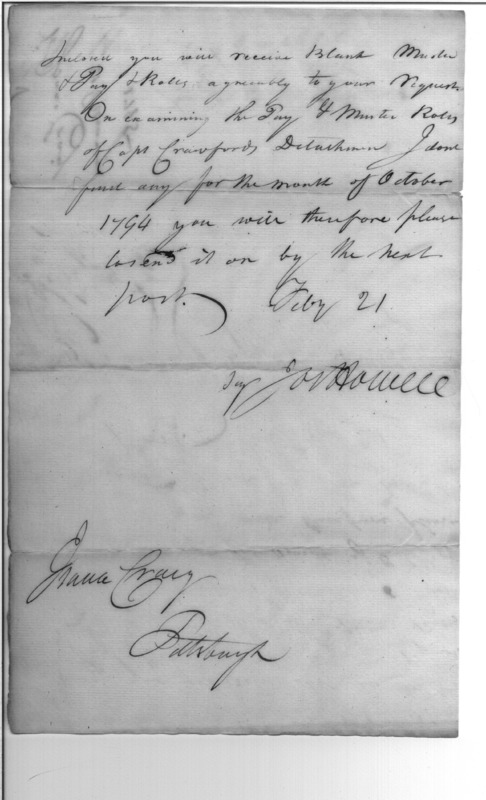 Inclosed you will receive Blank Muster
& Pay & Roles agreeably to your request
On examining the Pay & Muster Roles
of Capt Crawfords Detachmen I dont
find any for the month of October
1794 you will therefore please
to send it on by the next
post. Feby 21
Jos Howell
Isaac Craig
Pittsburgh